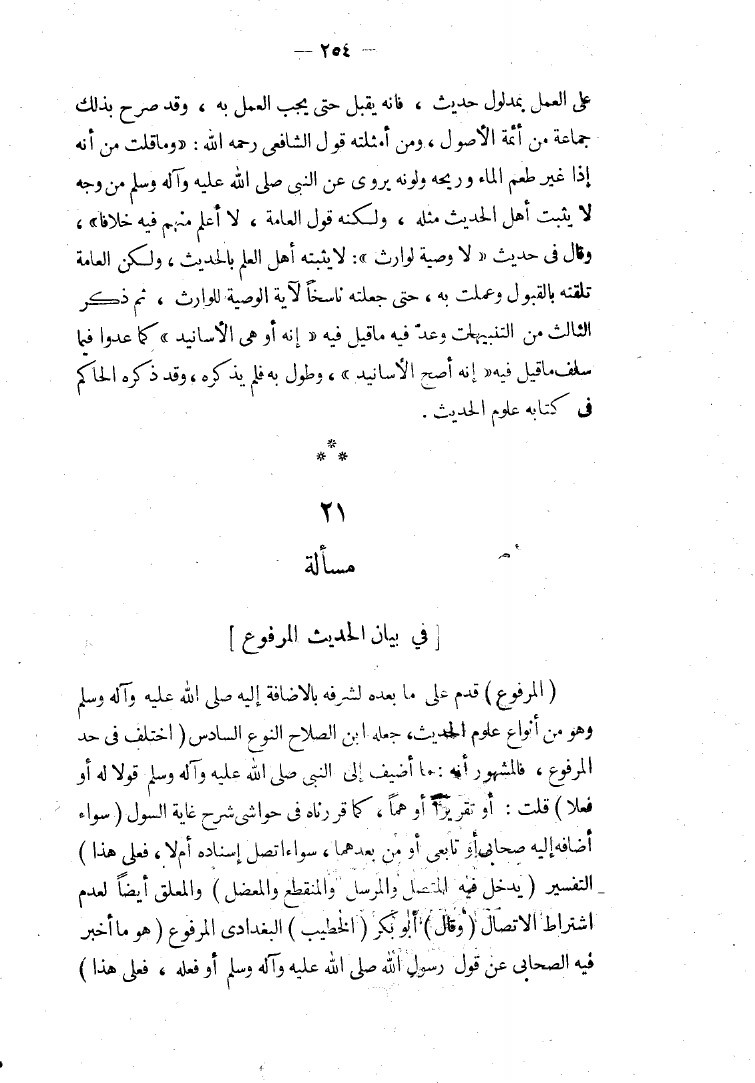 — ٢٥٤ —
على العمل بمدلول حديث ، فانه يقبل حتى يجب العمل به ، وقد صرح بذلك
جماعة من أئمة الأصول ، ومن أمثلته قول الشافعى رحمه الله : «وماقلت من أنه
إذا غير طعم الماء وريحه ولونه يروى عن النبى صلى الله عليه وآله وسلم من وجه
لا يثبت أهل الحديث مثله ، ولكنه قول العامة ، لا أعلم منهم فيه خلافا» ،
وقال فى حديث « لا وصية لوارث »: لايثبته أهل العلم بالحديث ، ولكن العامة
تلقته بالقبول وعملت به ، حتى جعلته ناسخاً لآية الوصية للوارث ، ثم ذكر
الثالث من التنبيهات وعدّ فيه ماقيل فيه « إنه أو هى الأسانيد » كما عدوا فيما
سلف ماقيل فيه « إنه أصح الأسانيد » ، وطول به فلم يذكره ، وقد ذكره الحاكم
فى كتابه علوم الحديث .
*
* *
٢١
مسألة
[ في بيان الحديث المرفوع ]
( المرفوع ) قدم على ما بعده لشرفه بالاضافة إليه صلى الله عليه وآله وسلم
وهو من أنواع علوم الحديث، جعله ابن الصلاح النوع السادس ( اختلف فى حد
المرفوع ، فالمشهور أنه : ما أضيف إلى النبى صلى الله عليه وآله وسلم قولا له أو
فعلا ) قلت : أو تقريراً أو هماً ، كما قررناه فى حواشى شرح غاية السول ( سواء
أضافه إليه صحابى أو تابعى أو من بعدهما ، سواء اتصل إسناده أم لا ، فعلى هذا )
التفسير ( يدخل فيه المتصل والمرسل والمنقطع والمعضل ) والمعلق أيضاً لعدم
اشتراط الاتصال ( وقال ) أبو بكر ( الخطيب ) البغدادى المرفوع ( هو ما أخبر
فيه الصحابى عن قول رسول الله صلى الله عليه وآله وسلم أو فعله ، فعلى هذا )